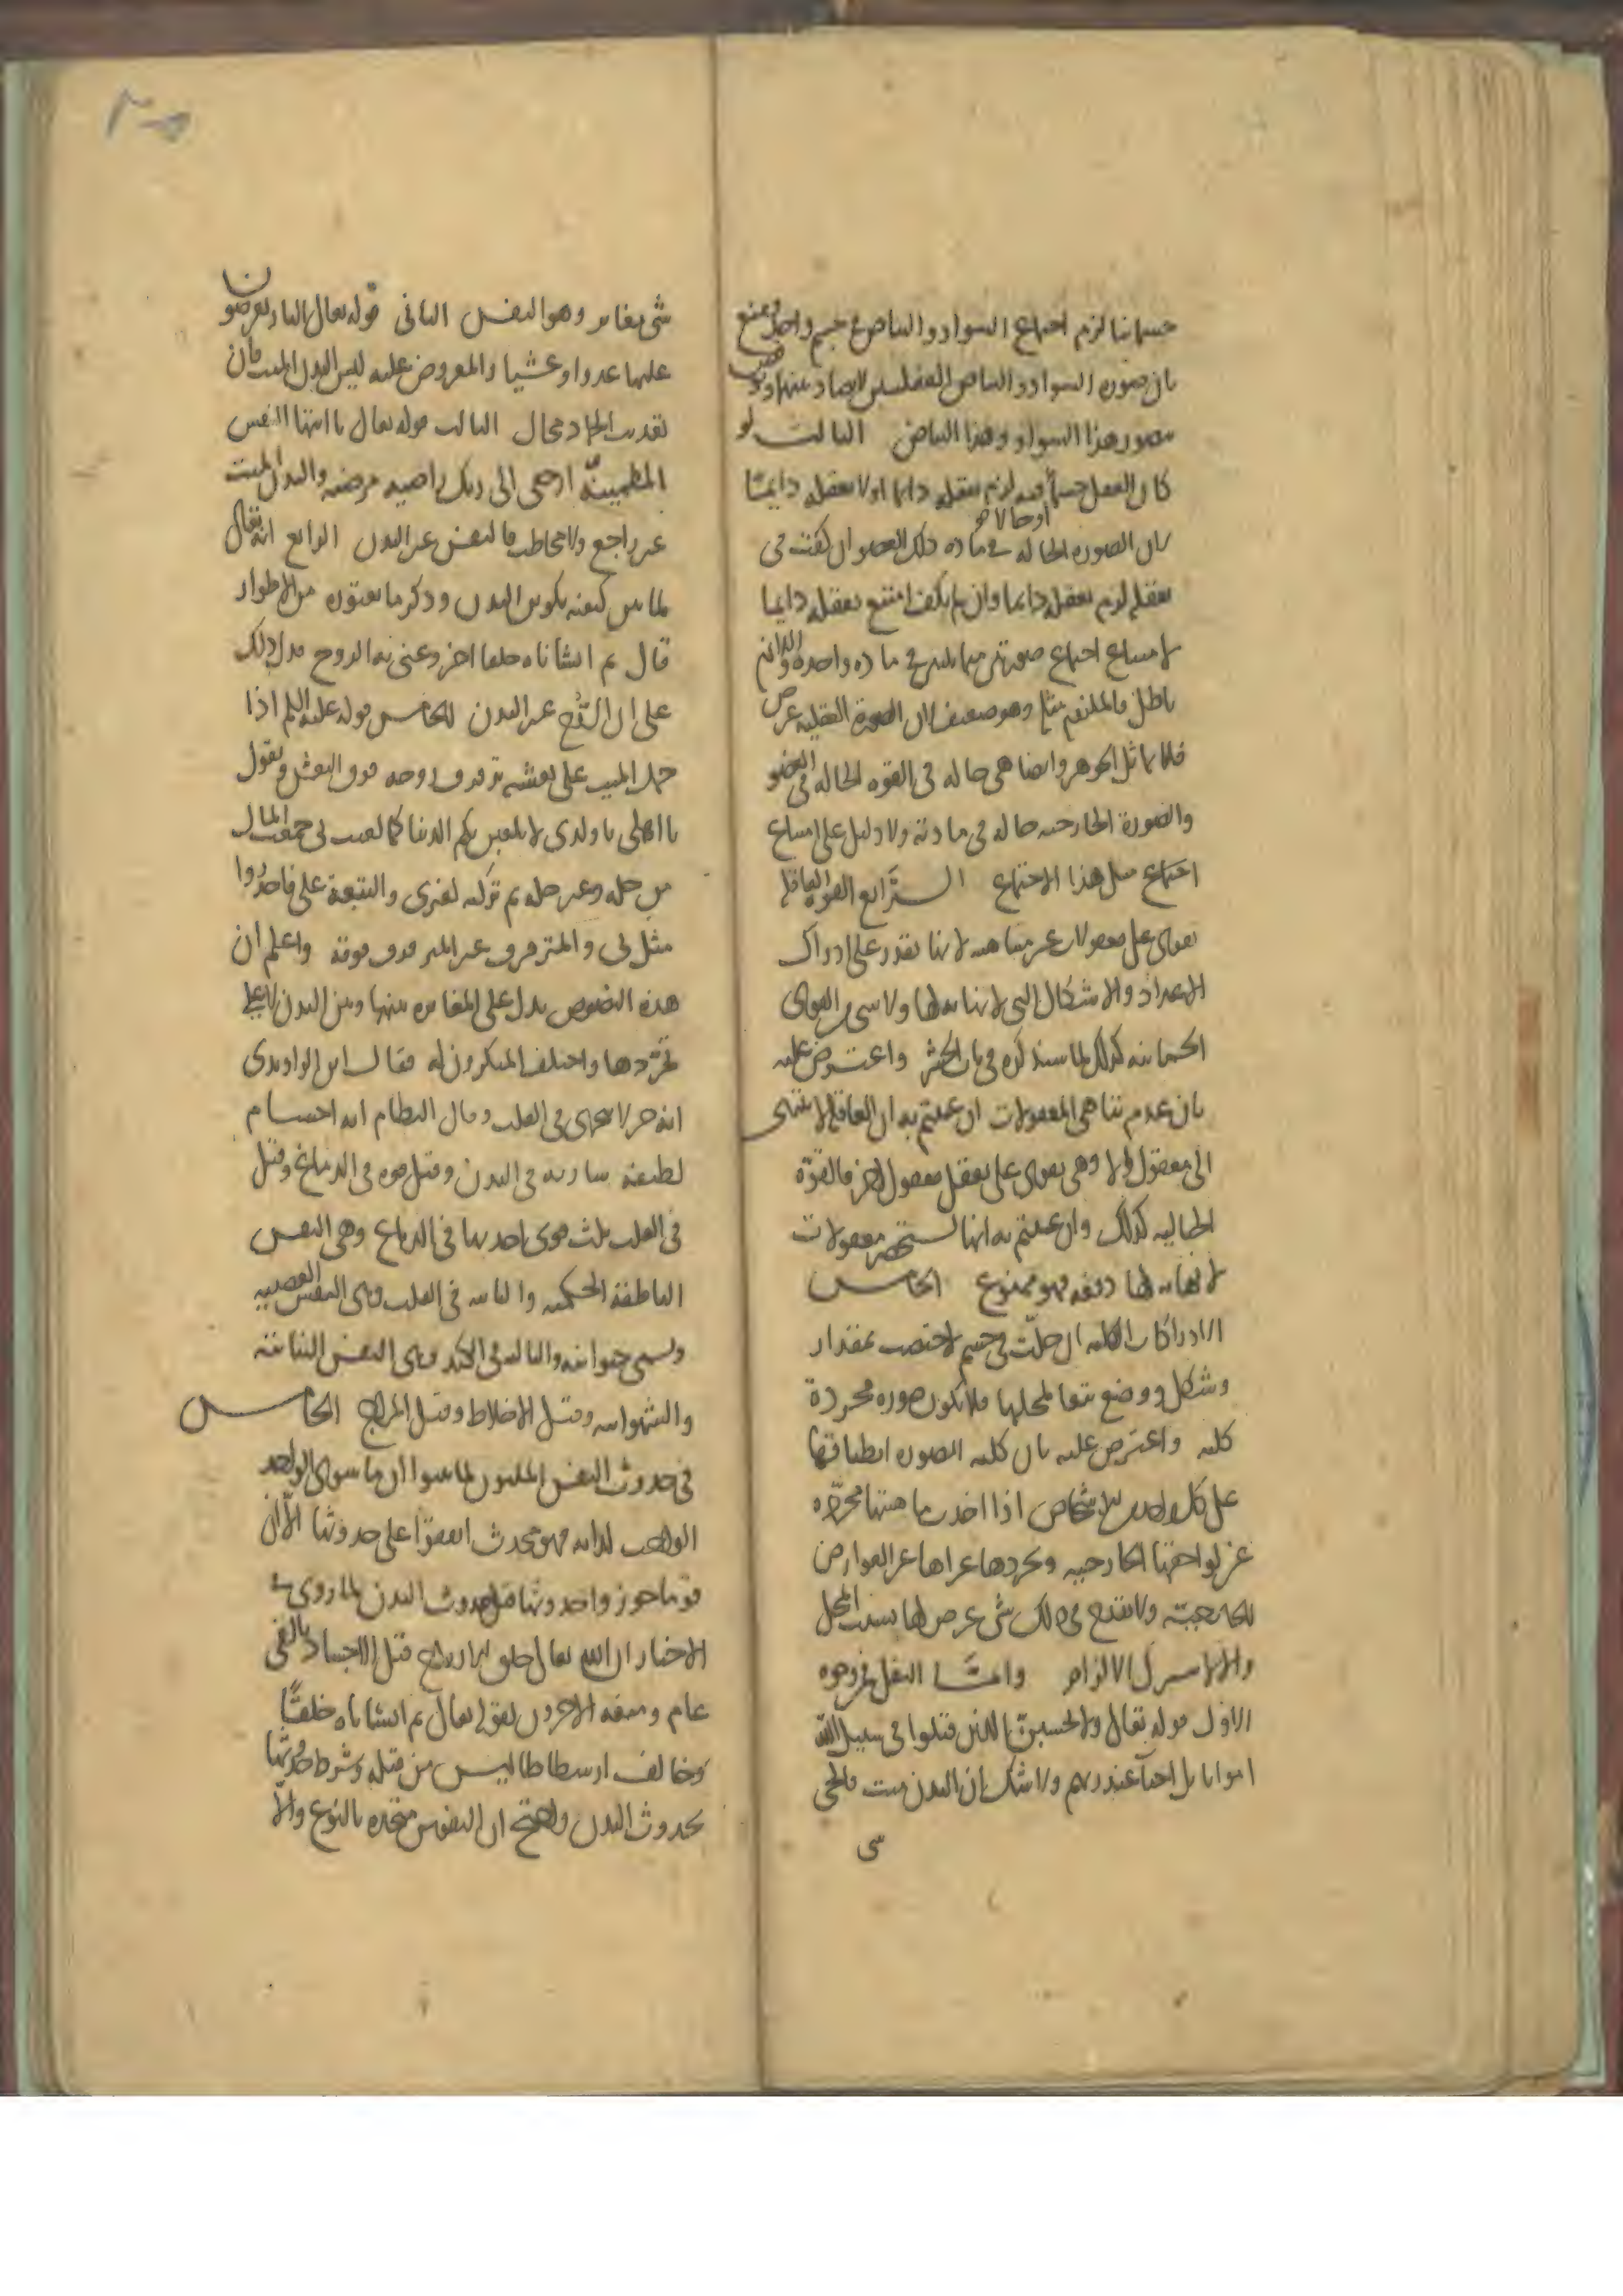 جسمانيا لزم اجتماع السواد والبياض في جسم واحد ومنع
بان صورة السواد والبياض العقليتين لا تضاد بينهما ونوقض
بتصور هذا السواد وهذا البياض الثالث لو
كان العقل جسما او حالا فيه لزم تعقله دايما او لا تعقله دايما
لان الصورة الحالة في مادة ذلك العضو ان كفت في
تعقله لزم تعقله دايما وان لم يكف امتنع تعقله دايما
لامتناع اجتماع صورتين متماثلتين في مادة واحدة واللازم
باطل فالملزوم مثله وهو ضعيف لان الصورة العقلية عرض
فلا يماثل الجوهر وايضا هي حالة في القوة الحالة في العضو
والصورة الخارجية حالة في مادته ولا دليل على امتناع
اجتماع مثل هذا الاجتماع الرابع القوة العاقلة
تقوى على معقولات غير متناهية لانها تقدر على ادراك
الاعداد والاشكال التي لا نهاية لها ولا شيء من القوى
الجسمانية كذلك لما سنذكره في باب الحشر واعترض عليه
بان عدم تناهي المعقولات ان عنيتم به ان العاقلة لا تنتهي
الى معقول الا وهي تقوى على تعقل معقول اخر فالقوة
الخيالية كذلك وان عنيتم به انها تستحضر معقولات
لا نهاية لها دفعة فهو ممنوع الخامس
الادراكات الكلية ان حلت في جسم لاختصت بمقدار
وشكل ووضع تبعا لمحلها فلا تكون صورة مجردة
كلية واعترض عليه بان كلية الصورة انطباقها
على كل واحد من الاشخاص اذا اخذت ماهيتها مجردة
عن لواحقها الخارجية وتجردها عراها عن العوارض
الخارجية ولا يقدح في ذلك شي عرض لها بسبب المحل
والا لاشترك الالزام واما النقل فمن وجوه
الاول قوله تعالى ولا تحسبن الذين قتلوا في سبيل الله
امواتا بل احيا عند ربهم ولا شك ان البدن ميت فالحي
شي
شي مغاير وهو النفس الثاني قوله تعالى النار يعرضون
عليها غدوا وعشيا والمعروض عليه ليس البدن الميت فان
تعذيب الجماد محال الثالث قوله تعالى يا ايتها النفس
المطمينة ارجعي الى ربك راضية مرضية والبدن الميت
غير راجع ولا مخاطب فالنفس غير البدن الرابع انه تعالى
لما بين كيفية تكوين البدن وذكر ما يعتوره من الاطوار
قال ثم انشاناه خلقا اخر وعنى به الروح فدل ذلك
على ان الروح غير البدن الخامس قوله عليه السلم اذا
حمل الميت على نعشه ترفرف روحه فوق النعش ويقول
يا اهلي يا ولدي لا تلعبن بكم الدنيا كما لعبت بي جمعت المال
من حله وغير حله ثم تركته لغيري والتبعة علي فاحذروا
مثل بي والمترفرف غير المرفرف فوقه واعلم ان
هذه النصوص تدل على المغايرة بينها وبين البدن لا على
تجردها واختلف المنكرون له فقال ابن الراوندي
انه جز لا يتجزى في القلب وقال النظام انه اجسام
لطيفة سارية في البدن وقيل قوة في الدماغ وقيل
في القلب وقيل ثلث قوى احديها في الدماغ وهي النفس
الناطقة الحكمية والثانية في القلب وهي النفس الغضبية
وتسمى حيوانية والثالثة في الكبد وهي النفس النباتية
والشهوانية وقيل الاخلاط وقيل المزاج الخامس
في حدوث النفس المليون لما بينوا ان ما سوى الواحد
الواجب لذاته فهو محدث اتفقوا على حدوثها الا ان
قوما جوزوا حدوثها قبل حدوث البدن لما روي في
الاخبار ان الله تعالى خلق الارواح قبل الاجساد بالفي
عام ومنعه الاخرون لقوله تعالى ثم انشاناه خلقا
وخالف ارسطاطاليس من قبله وشرط حدوثها
بحدوث البدن واحتج ان النفوس متحدة بالنوع والا